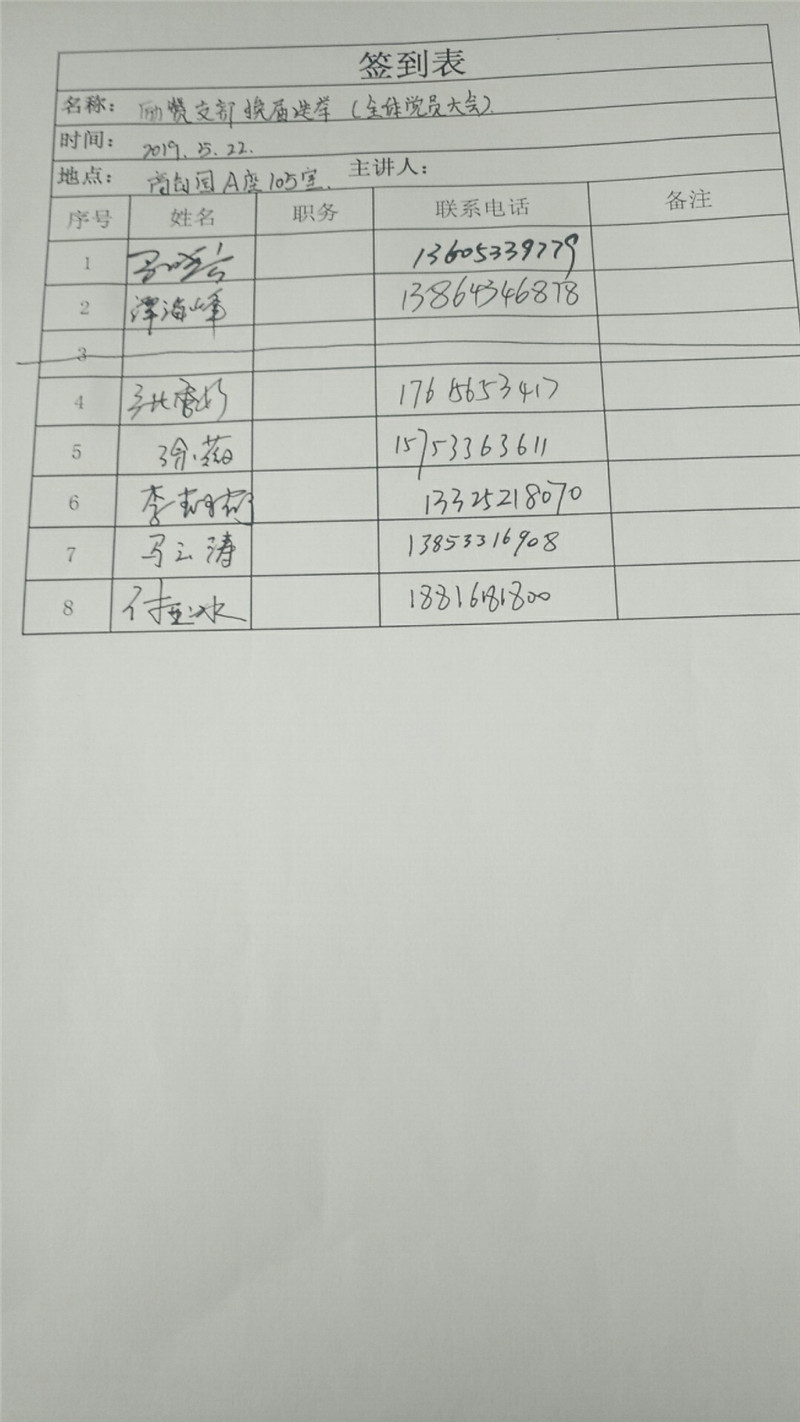 签到表
名称： 励贤支部换届选举（全体党员大会）
时间： 2019.25.22.
地点： 创园A座105室. 主讲人：
序号 姓名 职务 联系电话 备注
1 13605339779
2 谭海峰 13864346878
3
4 张 17686653417
5 15753363611
6 李 13325218070
7 马云涛 13853316908
8 付亚冰 18816181800